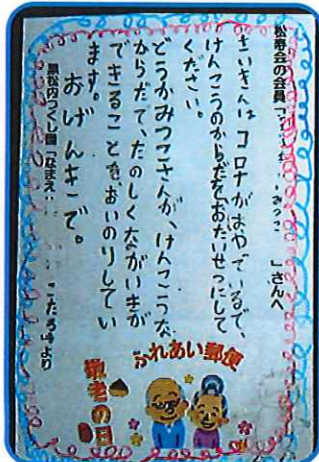 松寿会の会員「 みつこ 」さんへ
さいきんは コロナがはやっているので、
けんこうのからだをおたいせつにして
ください。
どうかみつこさんが、けんこうな
からだで、たのしくながいきが
できることをおいのりしてい
ます。
おげんきで。
黒松内つくし園「なまえ：こたろう」より
ふれあい郵便
敬老の日